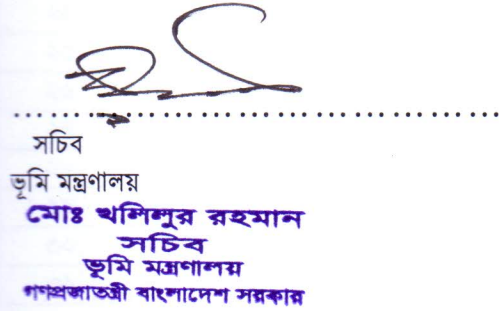 সচিব
ভূমি মন্ত্রণালয়
মোঃ খলিলুর রহমান
সচিব
ভূমি মন্ত্রণালয়
গণপ্রজাতন্ত্রী বাংলাদেশ সরকার